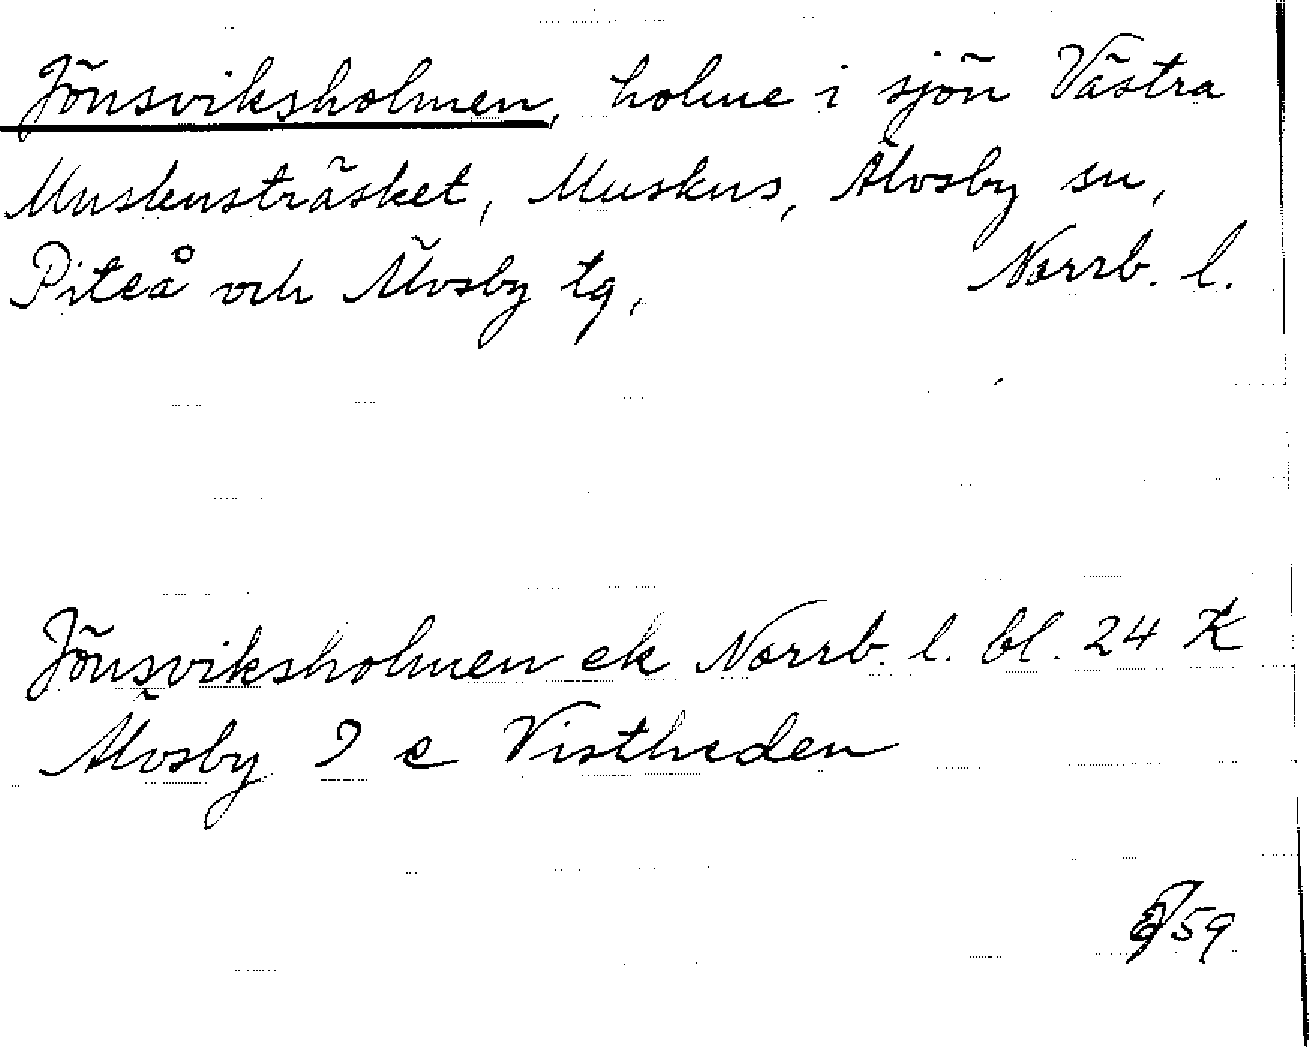 Jönsviksholmen, holme i sjön Västra
Muskusträsket, Muskus, Älvsby sn,
Piteå och Älvsby tg, Norrb. l.
Jönsviksholmen ek Norrb. l. bl. 24 K
Älvsby 9 c Vistheden
59